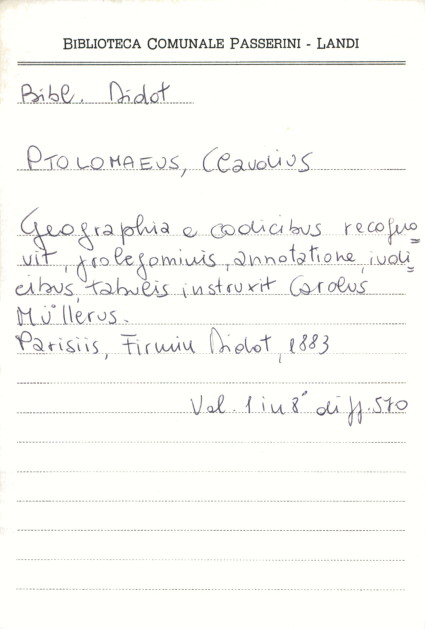 BIBLIOTECA COMUNALE PASSERINI - LANDI
Bibl. Didot
PTOLOMAEUS, Claudius
Geographia e codicibus recogno=
vit, prolegominis, annotatione, indi=
cibus, tabulis instruxit Carolus
Müllerus.
Parisiis, Firmin Didot, 1883
Vol. 1 in 8° di pp. 570